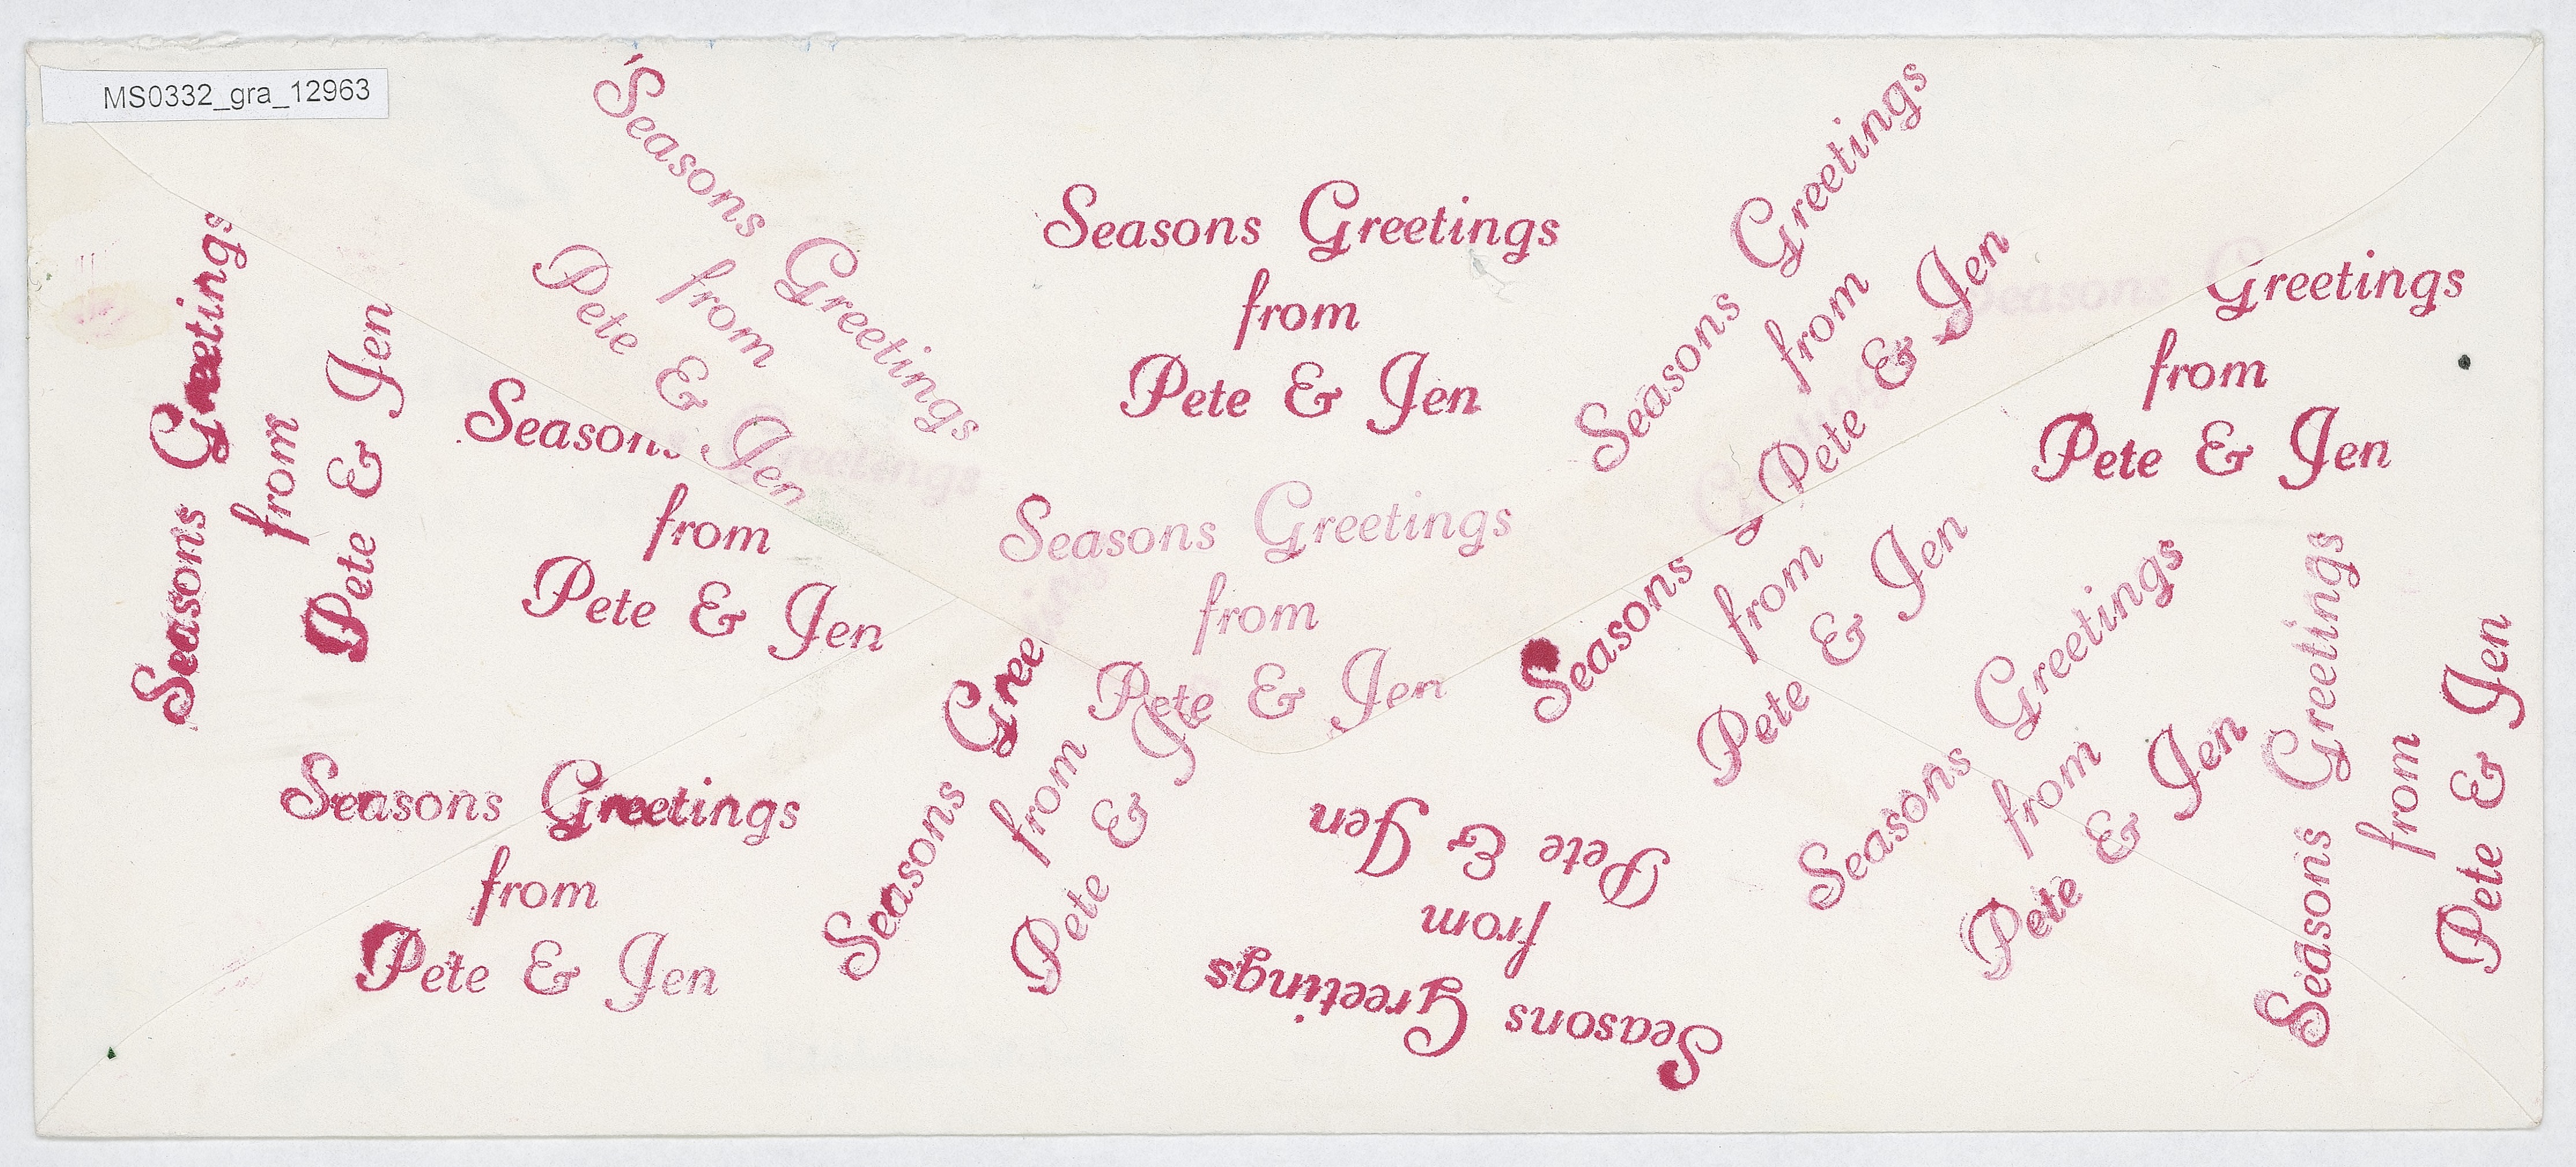 MS0332_gra_12963
Seasons Greetings
from
Pete & Jen
Seasons Greetings
from
Pete & Jen
Seasons Greetings
from
Pete & Jen
Seasons Greetings
from
Pete & Jen
Seasons Greetings
from
Pete & Jen
Seasons Greetings
from
Pete & Jen
Seasons Greetings
from
Pete & Jen
Seasons Greetings
from
Pete & Jen
Seasons Greetings
from
Pete & Jen
Seasons Greetings
from
Pete & Jen
Seasons Greetings
from
Pete & Jen
Seasons Greetings
from
Pete & Jen
Seasons Greetings
from
Pete & Jen